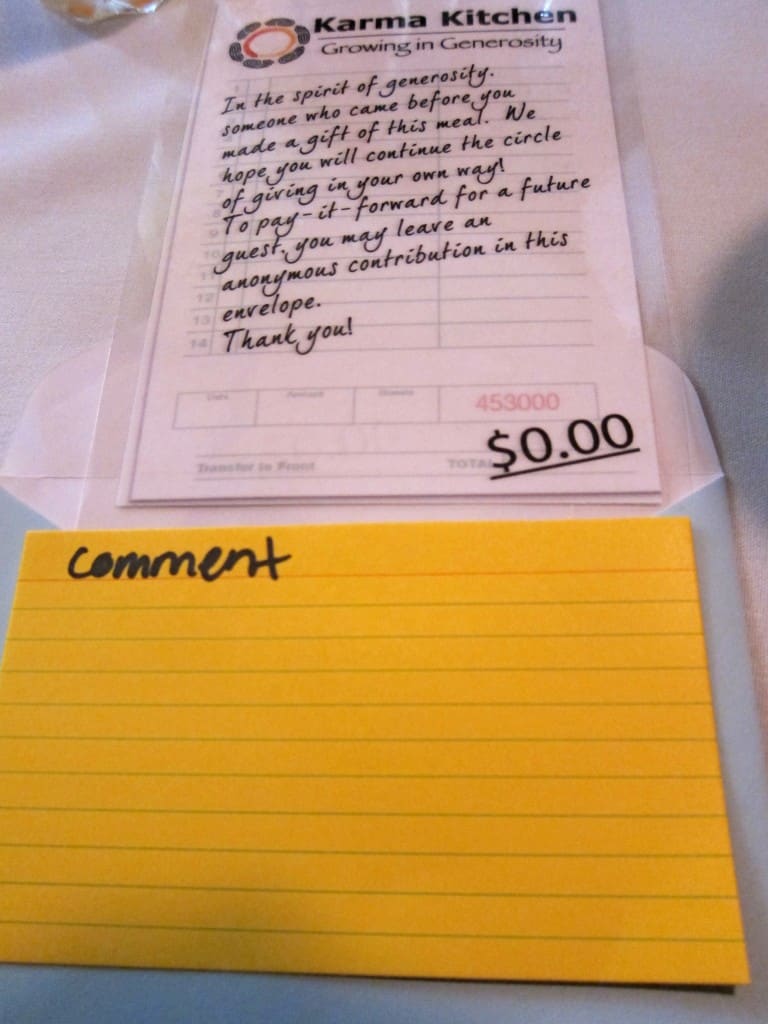 Karma Kitchen
Growing in Generosity
In the spirit of generosity.
someone who came before you
made a gift of this meal. We
hope you will continue the circle
of giving in your own way!
To pay-it-forward for a future
guest, you may leave an
anonymous contribution in this
envelope.
Thank you!
12
13
14
453000
Transfer to Front
TOTAL
$0.00
comment